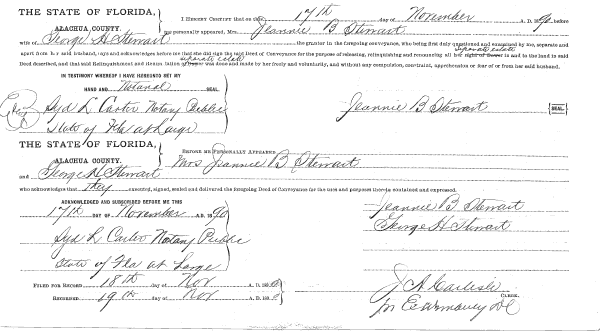 THE STATE OF FLORIDA,
ALACHUA COUNTY.
I HEREBY CERTIFY that on this 17th day of November A. D. 1890, before
me personally appeared, Mrs. Jeannie B Stewart
wife of George H. Stewart the grantor in the foregoing conveyance, who being first duly questioned and examined by me, separate and
separate estate
apart from her said husband, says and acknowledges before me that she did sign the said Deed of Conveyance for the purpose of releasing, relinquishing and renouncing all her right of dower in and to the land in said
separate estate
Deed described, and that said Relinquishment and Renunciation of dower was done and made by her freely and voluntarily, and without any compulsion, constraint, apprehension or fear of or from her said husband.
IN TESTIMONY WHEREOF I HAVE HEREUNTO SET MY
HAND AND Notarial SEAL.
Syd L Carter Notary Public
State of Fla at Large
Jeannie B Stewart SEAL.
THE STATE OF FLORIDA,
ALACHUA COUNTY.
BEFORE ME PERSONALLY APPEARED
Mrs Jeannie B Stewart
and George H Stewart
who acknowledges that they executed, signed, sealed and delivered the foregoing Deed of Conveyance for the uses and purposes therein contained and expressed.
ACKNOWLEDGED AND SUBSCRIBED BEFORE ME THIS
17th DAY OF November A.D. 1890
Jeannie B Stewart
George H Stewart
Syd L Carter Notary Public
State of Fla at Large
FILED FOR RECORD 18th day of Nov A.D. 1890
RECORDED 19th day of Nov A.D. 1890
J A Carlisle
CLERK.